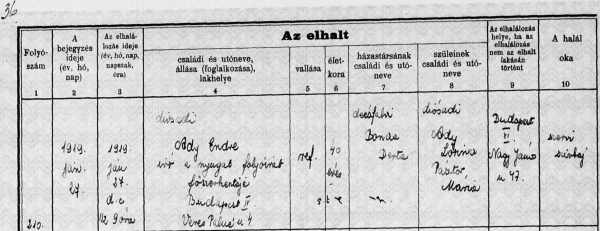 36
Az elhalt
Folyó-
szám
A
bejegyzés
ideje
(év, hó,
nap)
Az elhalá-
lozás ideje
(év, hó, nap,
napszak,
óra)
családi és utóneve,
állása (foglalkozása),
lakhelye
vallása
élet-
kora
házastársának
családi és utó-
neve
szüleinek
családi és utó-
neve
Az elhalálozás
helye, ha az
elhalálozás
nem az elhalt
lakásán
történt
A halál
oka
1
2
3
4
5
6
7
8
9
10
210.
1919.
jan.
27.
1919
jan
27.
d.e.
diósadi
Ady Endre
író a nyugat folyóirat
főszerkesztője
Budapest IV.
Veres Pálné u 4
ref.
40
éves
Boncza
Berta
diósadi
Ady
Lőrinc
Pásztor
Mária
Budapest
VI.
Nagy János
u 47.